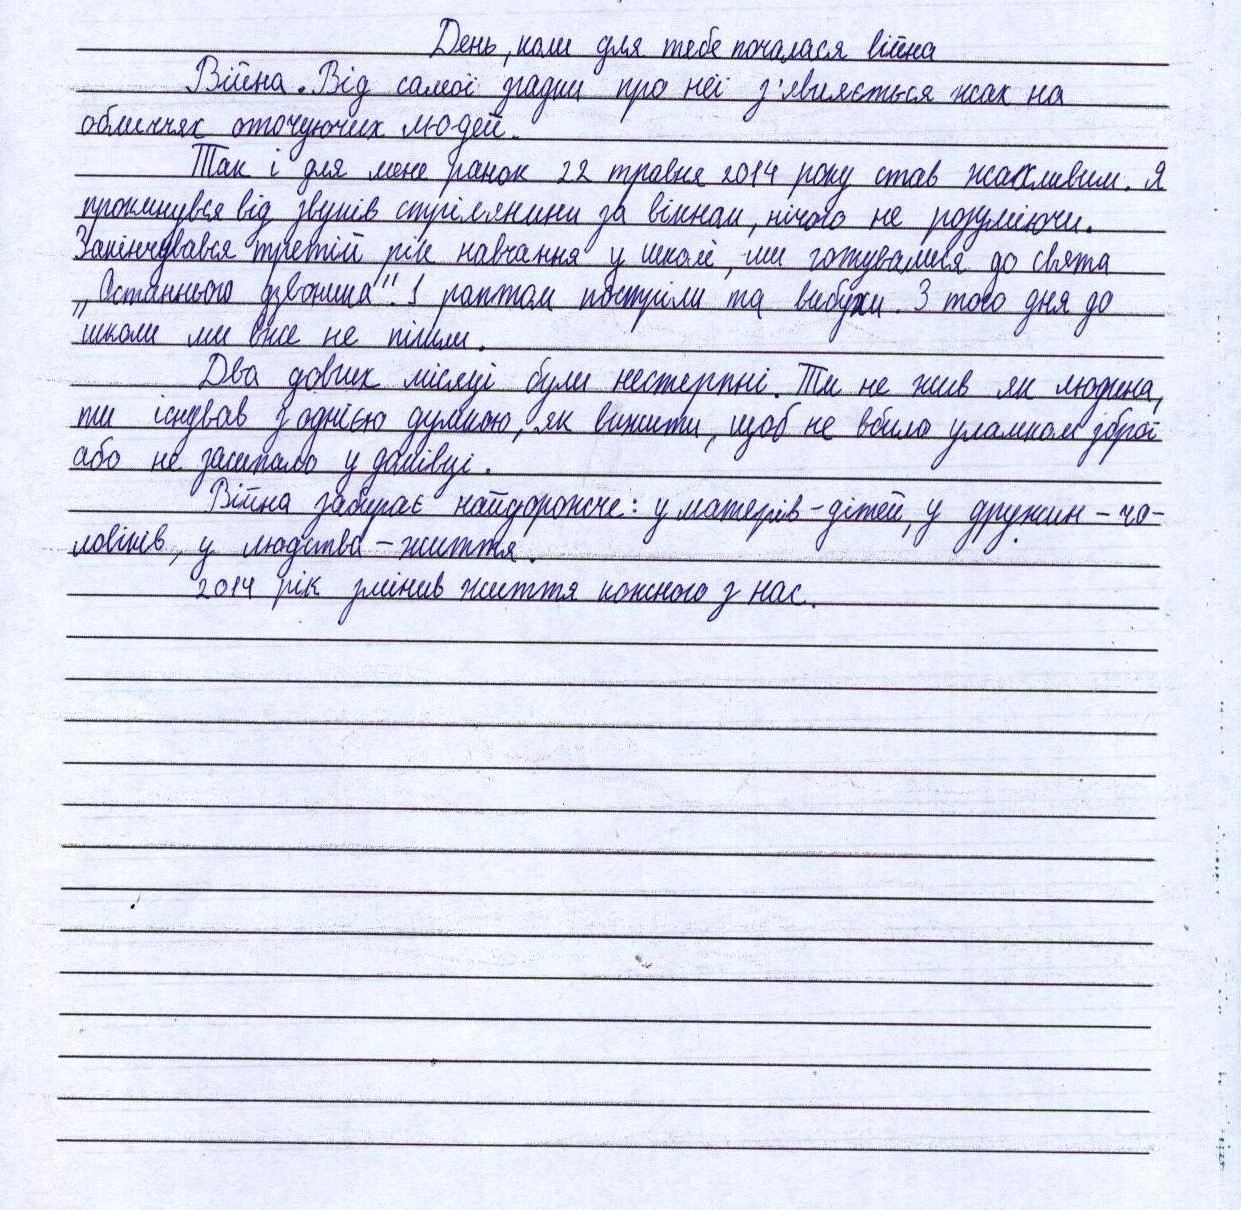 День, коли для тебе почалася війна
Війна. Від самої згадки про неї з'являється жах на
обличчях оточуючих людей.
Так і для мене ранок 22 травня 2014 року став жахливим. Я
прокинувся від звуків стрілянини за вікном, нічого не розуміючи.
Закінчувався третій рік навчання у школі, ми готувалися до свята
„Останнього дзвоника". І раптом постріли та вибухи. З того дня до
школи ми вже не пішли.
Два довгих місяці були нестерпні. Ти не жив як людина,
ти існував з однією думкою, як вижити, щоб не вбило уламком зброї
або не засипало у домівці.
Війна забирає найдорожче: у матерів - дітей, у дружин - чо-
ловіків, у людства - життя.
2014 рік змінив життя кожного з нас.